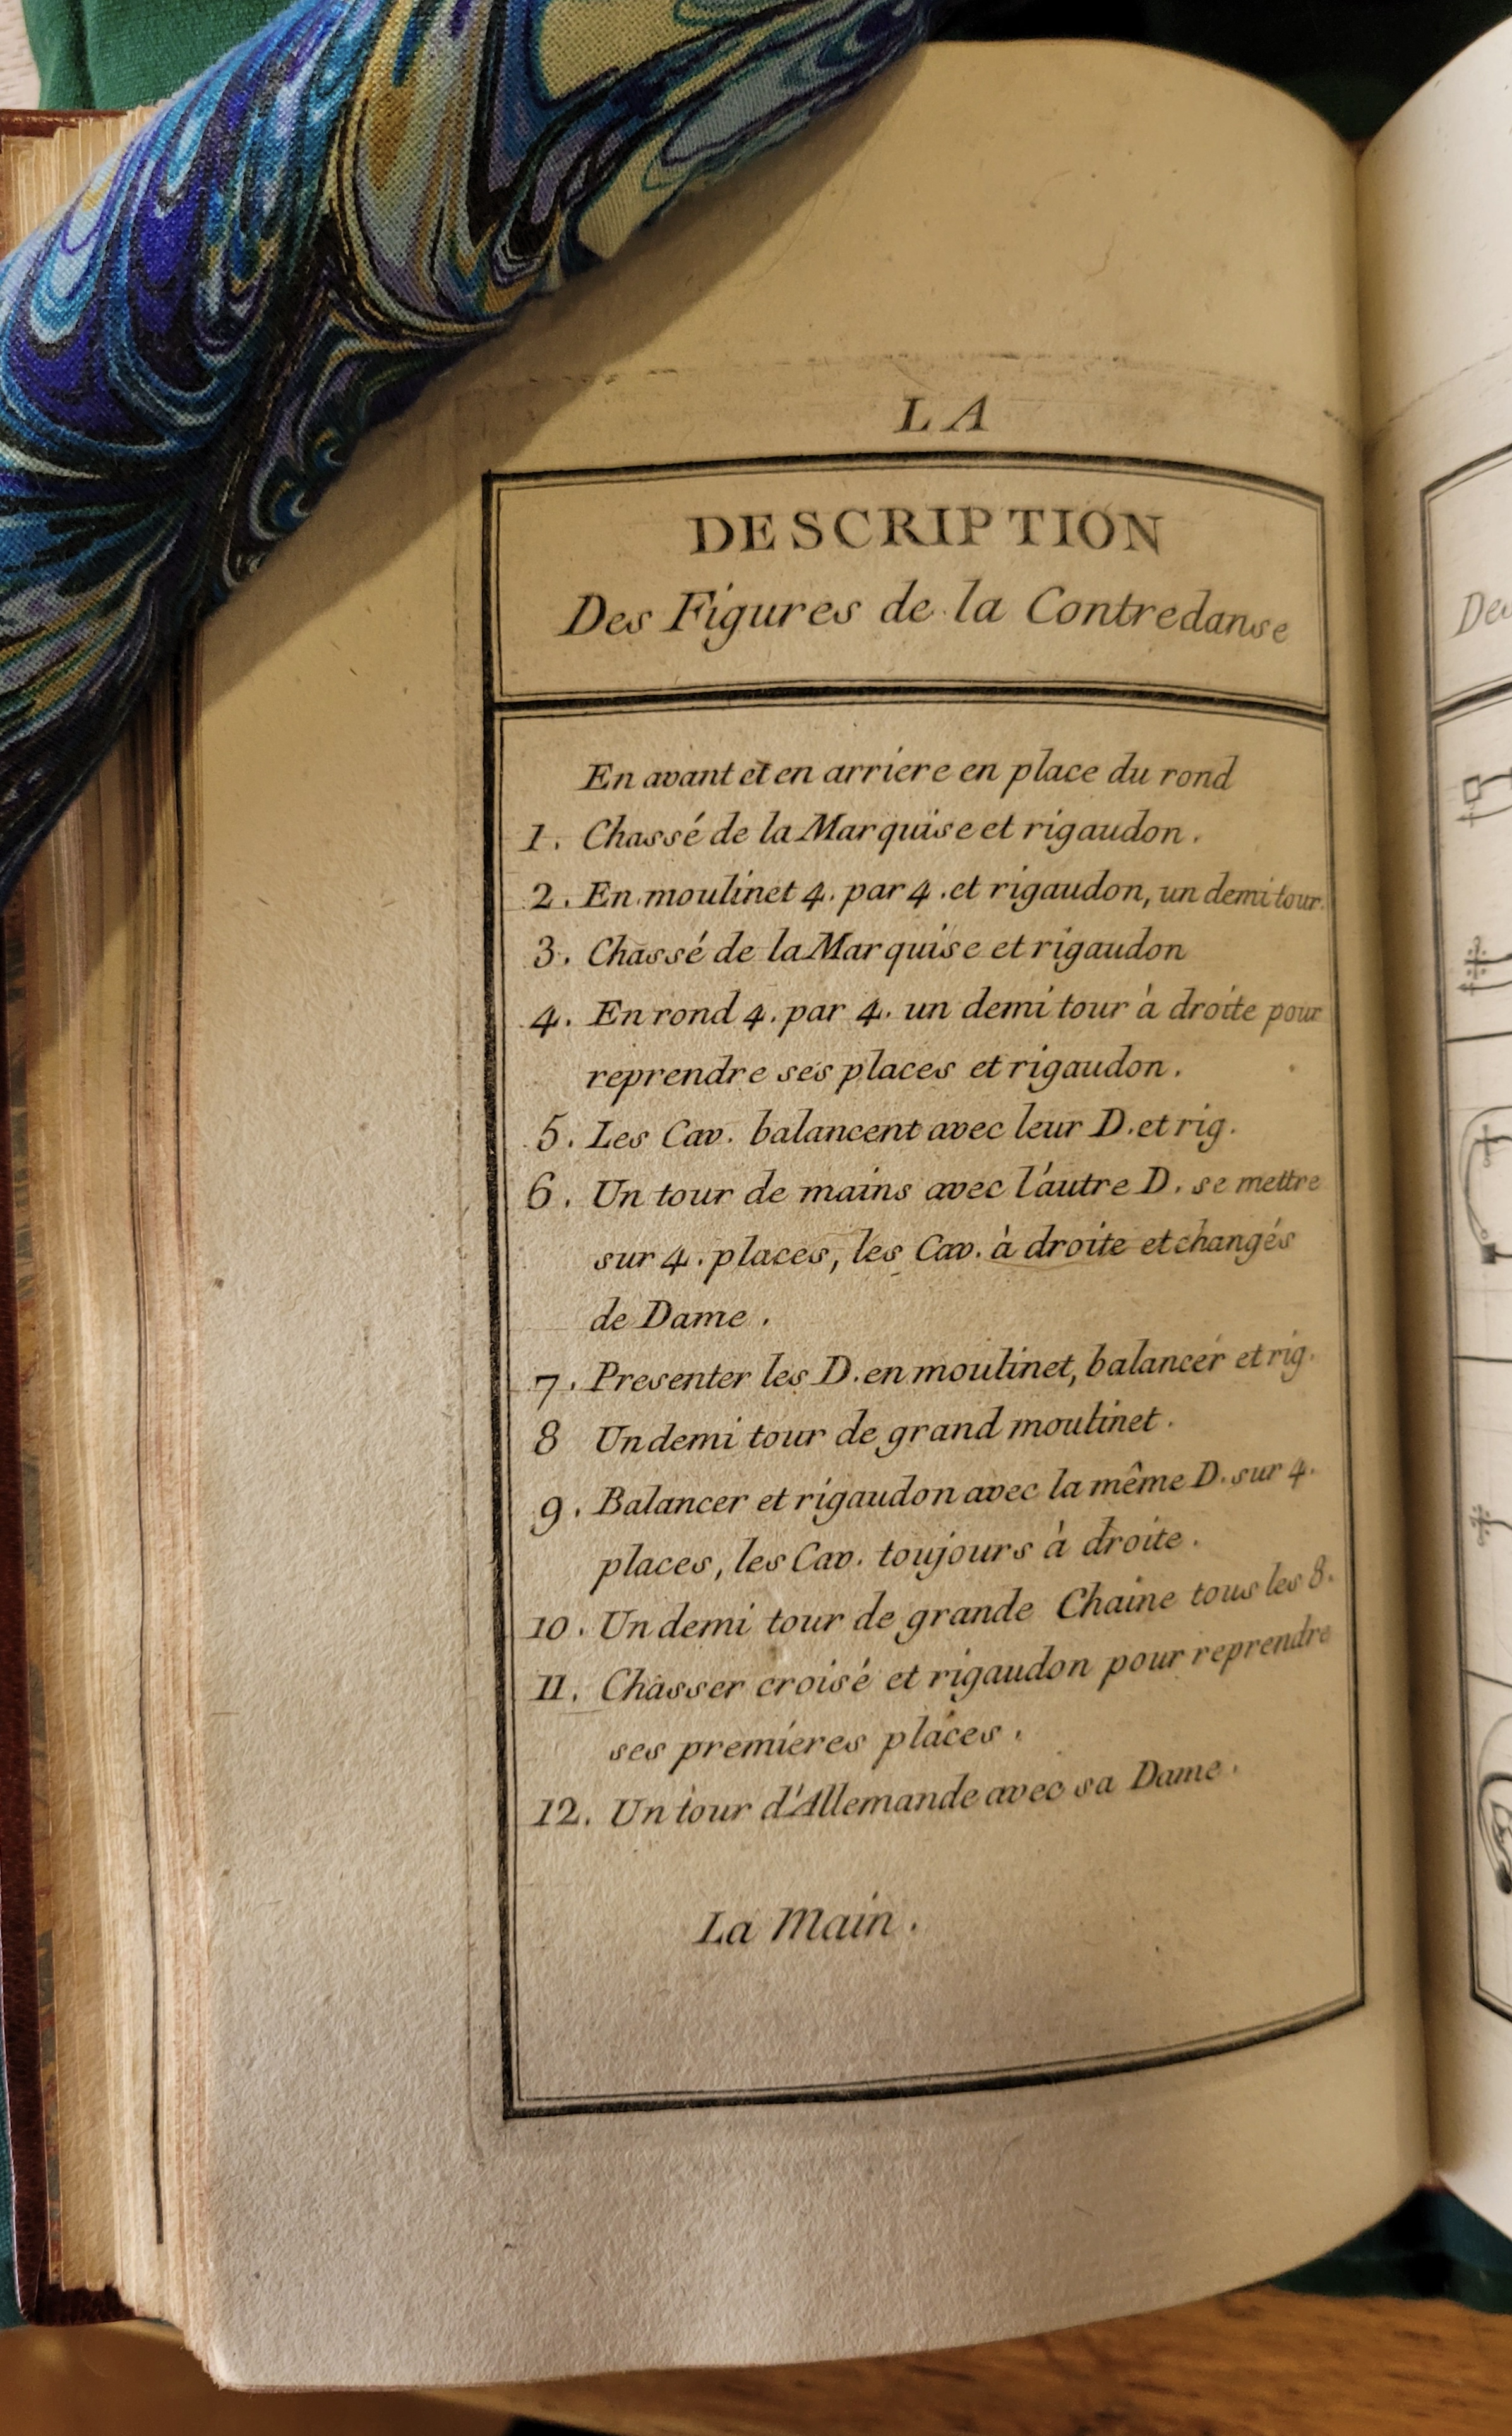 LA
DESCRIPTION
Des Figures de la Contredanse
En avant et en arriere en place du rond
1. Chassé de la Marquise et rigaudon.
2. En moulinet 4. par 4. et rigaudon, un demi tour.
3. Chassé de la Marquise et rigaudon
4. En rond 4. par 4. un demi tour à droite pour
reprendre ses places et rigaudon.
5. Les Cav. balancent avec leur D. et rig.
6. Un tour de mains avec l'autre D. se mettre
sur 4. places, les Cav. à droite et changés
de Dame.
7. Presenter les D. en moulinet, balancer et rig.
8 Un demi tour de grand moulinet.
9. Balancer et rigaudon avec la même D. sur 4.
places, les Cav. toujours à droite.
10. Un demi tour de grande Chaine tous les 8.
11. Chasser croisé et rigaudon pour reprendre
ses premieres places.
12. Un tour d'Allemande avec sa Dame.
La Main.